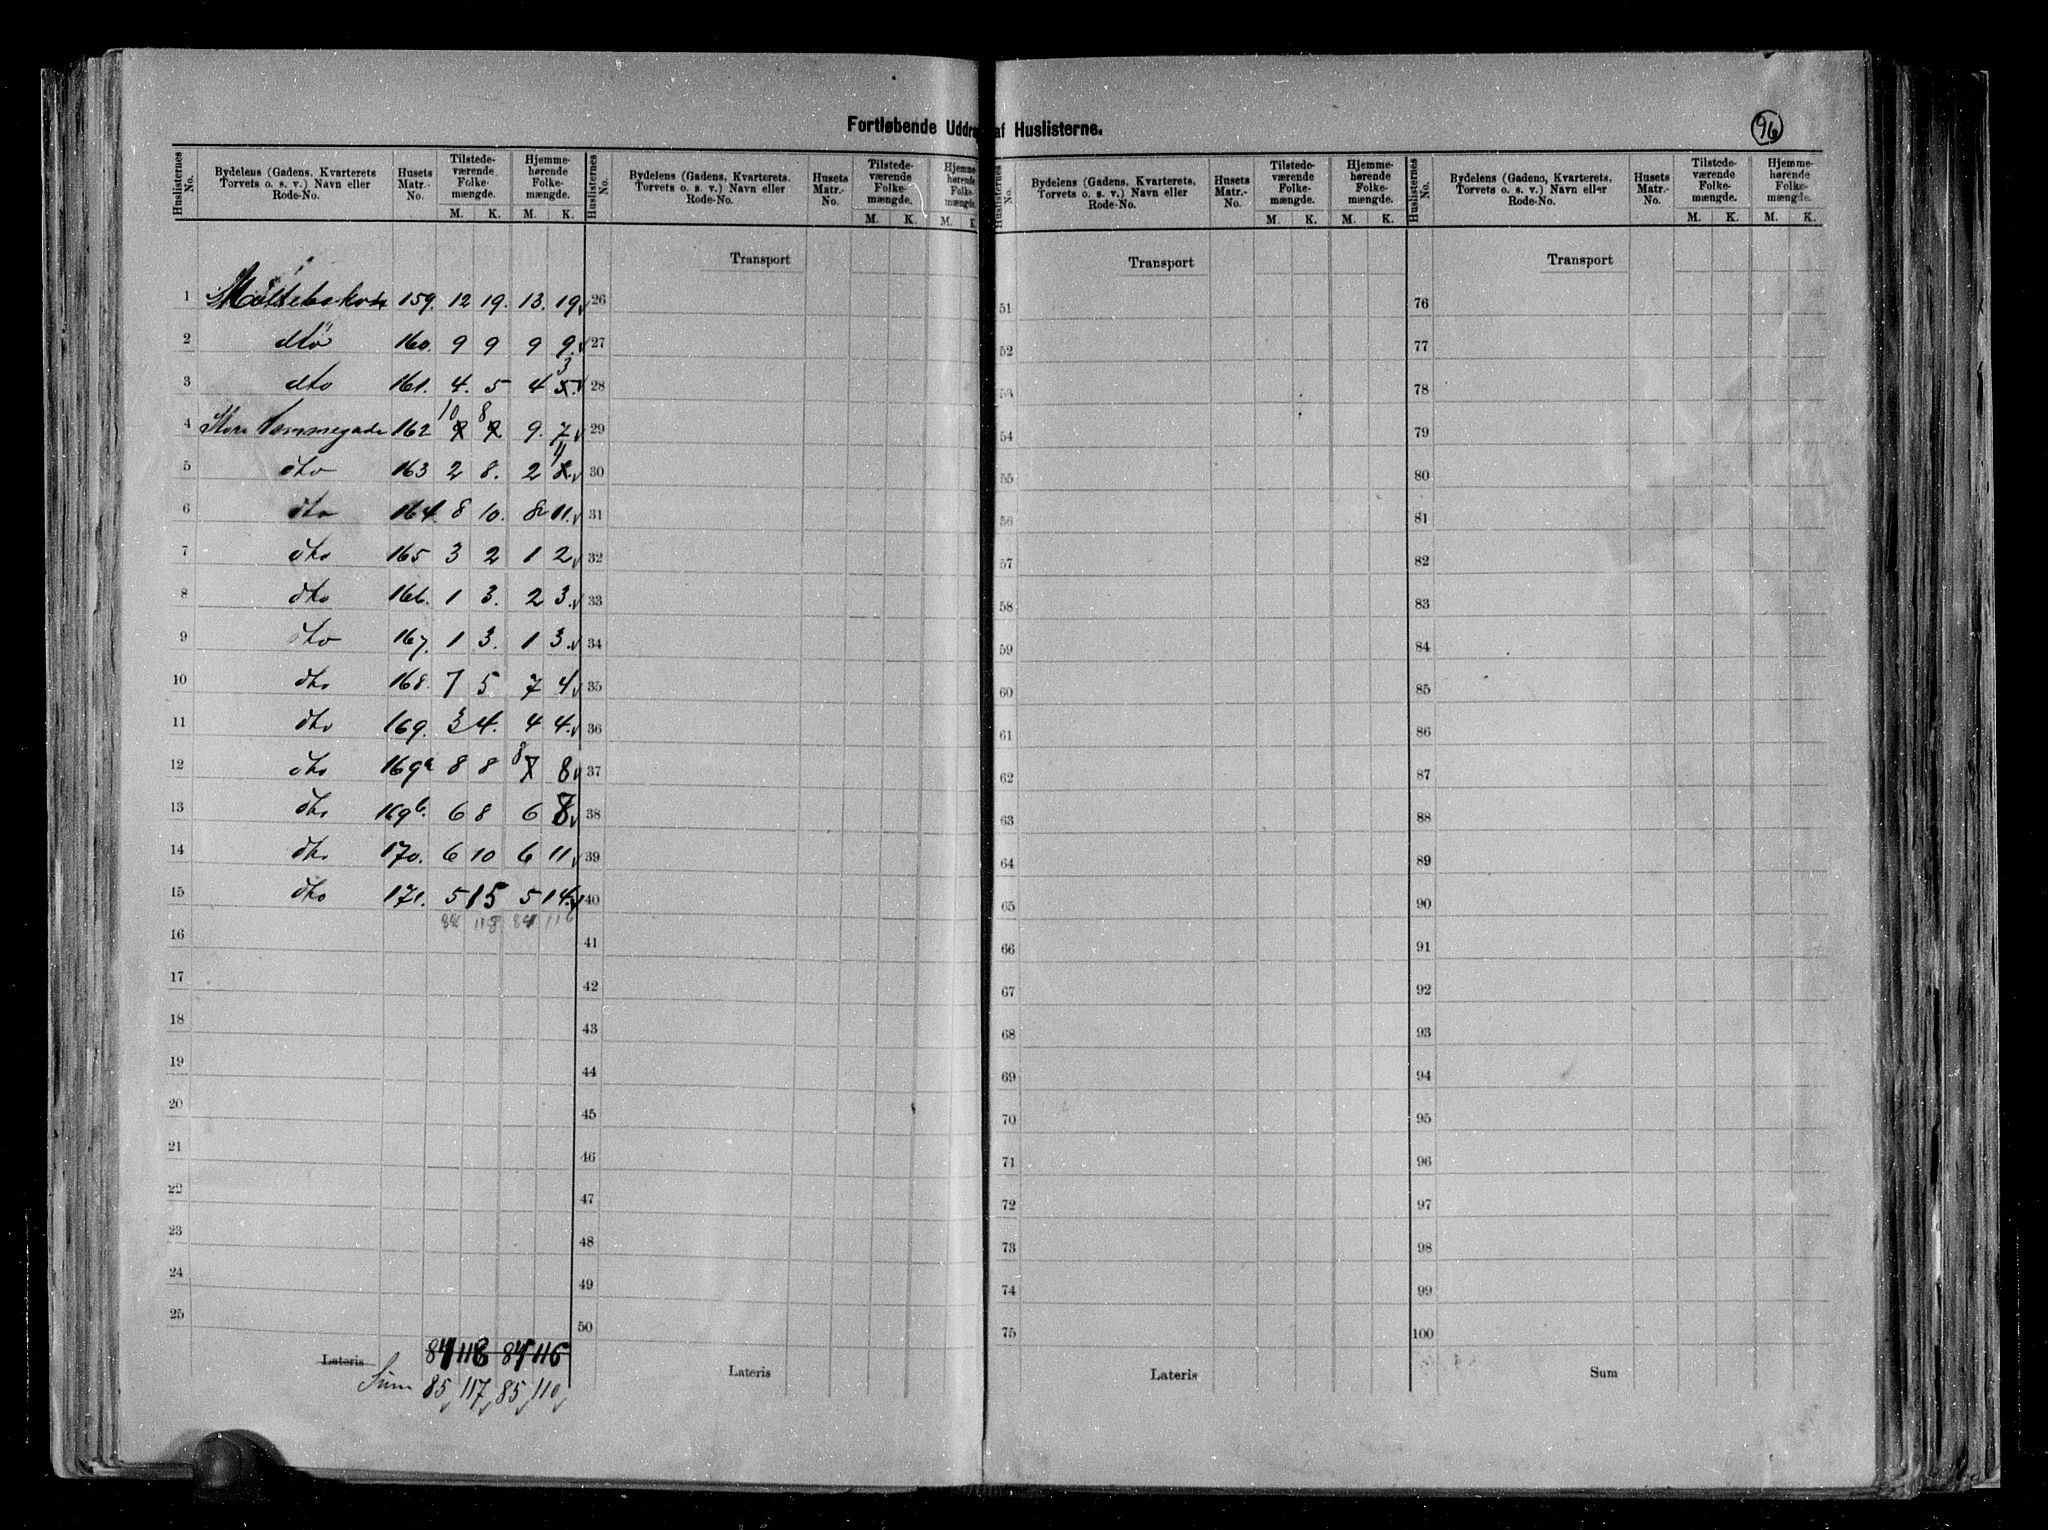 Fortløbende Uddra af Huslisterne.
96
Huslisternes No. Bydelens (Gadens, Kvarterets Torvets o. s. v.) Navn eller Rode-No. Husets Matr.-No. Tilstedeværende Folkemængde. M. K. Hjemmehørende Folkemængde. M. K.
Huslisternes No. Bydelens (Gadens, Kvarterets. Torvets o. s. v.) Navn eller Rode-No. Husets Matr.-No. Tilstedeværende Folkemængde. M. K. Hjemmehørende Folkemængde. M. K
Huslisternes No. Bydelens (Gadens, Kvarterets, Torvets o. s. v.) Navn eller Rode-No. Husets Matr.-No. Tilstedeværende Folkemængde. M. K. Hjemmehørende Folkemængde. M. K.
Huslisternes No. Bydelens (Gadens, Kvarterets, Torvets o. s. v.) Navn eller Rode-No. Husets Matr.-No. Tilstedeværende Folkemængde. M. K. Hjemmehørende Folkemængde. M. K.
Transport Transport Transport
1 159. 12 19. 13. 19 26 51 76
2 dto 160. 9 9 9 9. 27 52 77
3 dto 161. 4. 5 4 3 28 53 78
4 162 10 8 9. 7 29 54 79
5 dto 163 2 8. 2 4 30 55 80
6 dto 164. 8 10. 8 11. 31 56 81
7 dto 165 3 2 1 2 32 57 82
8 dto 166. 1 3. 2 3. 33 58 83
9 dto 167. 1 3. 1 3. 34 59 84
10 dto 168. 7 5 7 4 35 60 85
11 dto 169. 3 4. 4 4. 36 61 86
12 dto 169a 8 8 8 8 37 62 87
13 dto 169b. 6 8 6 8 38 63 88
14 dto 170. 6 10 6 11 39 64 89
15 dto 171. 5 15 5 14. 40 65 90
118 116
16 41 66 91
17 42 67 92
18 43 68 93
19 44 69 94
20 45 70 95
21 46 71 96
22 47 72 97
23 48 73 98
24 49 74 99
25 50 75 100
Lateris 84 118 84 116 Lateris Lateris Sum
Sum 85 117 85 110